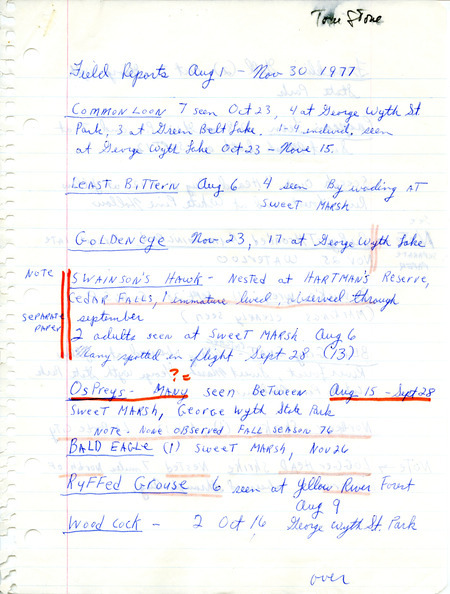 Tom Stone
Field Reports Aug 1 - Nov 30 1977
COMMON LOON 7 seen Oct 23, 4 at George Wyth St
Park, 3 at Green Belt Lake. 1-4 individ, seen
at George Wyth Lake Oct 23 - Nov 15.
LEAST BITTERN Aug 6 4 seen By wading AT
SWEET MARSH
GOLDENEYE Nov 23, 17 at George Wyth Lake
NOTE
SWAINSON'S HAWK - Nested at HARTMAN'S Reserve,
CEDAR FALLS, 1 immature lived, observed through
SEPARATE PAPER
september
2 adults seen at SWEET MARSH Aug 6
Many spotted in flight Sept 28 (13)
?=
OSPREYS - MANY seen BETWEEN Aug 15 - Sept 28
SWEET MARSH, GEORGE WYTH State PARK
NOTE - NONE OBSERVED FALL SEASON 76
BALD EAGLE (1) SWEET MARSH, Nov 26
RUFFED GROUSE 6 seen at Yellow River Forest
Aug 9
Woodcock - 2 Oct 16 George Wyth St. Park
over